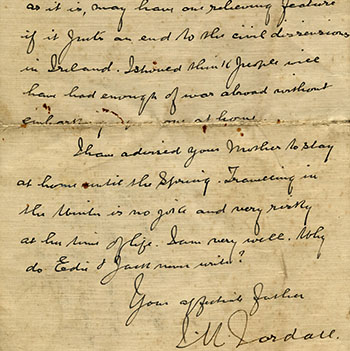 as it is, may have one relieving feature
if it puts an end to the civil dissensions
in Ireland. I should think people will
have had enough of war abroad without
embarking one at home
I have advised your Mother to stay
at home until the Spring. Travelling in
the Winter is no joke and very risky
at her time of life. I am very well. Why
do Edie & Jack never write?
Your affectionate father